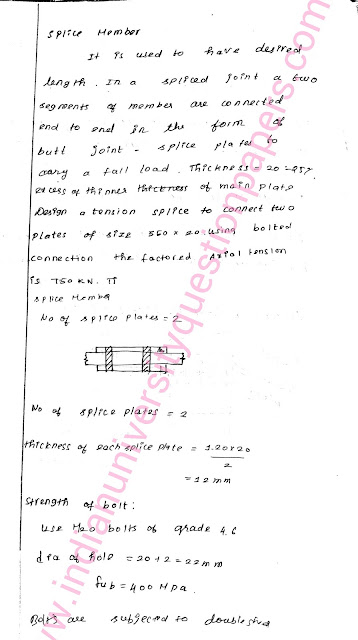 Splice Member
It is used to have desired
length. In a spliced joint a two
segments of member are connected
end to end in the form of
butt joint - splice plates to
carry a full load. Thickness = 20-25%
excess of thinner thickness of main plate.
Design a tension splice to connect two
plates of size 550 x 20 using bolted
connection the factored axial tension
is 750 KN.
Splice Member
No of splice plates = 2
No of splice plates = 2
thickness of each splice plate = 1.20 x 20
2
= 12 mm
Strength of bolt:
use M20 bolts of grade 4.6
dia of hole = 20 + 2 = 22 mm
fub = 400 MPa.
Bolts are subjected to double
www.indianuniversityquestionpapers.com